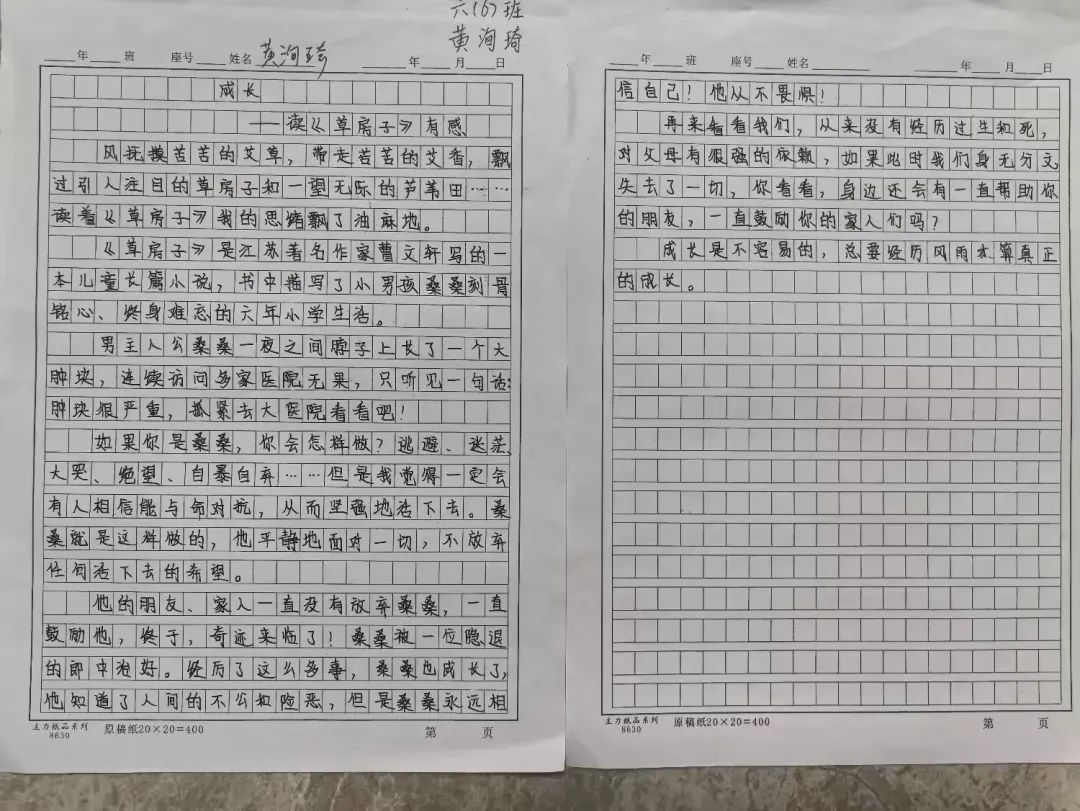 六(6)班
黄洵琦
年 班 座号 姓名 黄洵琦 年 月 日
成长
——读《草房子》有感
风抚摸苦苦的艾草，带走苦苦的艾香，飘
过引人注目的草房子和一望无际的芦苇田……
读着《草房子》我的思绪飘了油麻地。
《草房子》是江苏著名作家曹文轩写的一
本儿童长篇小说，书中描写了小男孩桑桑刻骨
铭心、终身难忘的六年小学生活。
男主人公桑桑一夜之间脖子上长了一个大
肿块，连续访问多家医院无果，只听见一句话：
肿块很严重，抓紧去大医院看看吧！
如果你是桑桑，你会怎样做？逃避、迷茫、
大哭、绝望、自暴自弃……但是我觉得一定会
有人相信能与命对抗，从而坚强地活下去。桑
桑就是这样做的，他平静地面对一切，不放弃
任何活下去的希望。
他的朋友、家人一直没有放弃桑桑，一直
鼓励他，终于，奇迹来临了！桑桑被一位隐退
的郎中治好。经历了这么多事，桑桑也成长了，
他知道了人间的不公和险恶，但是桑桑永远相
主力纸品系列
8630
原稿纸20×20=400
第 页
年 班 座号 姓名 年 月 日
信自己！他从不畏惧！
再来看看我们，从来没有经历过生和死，
对父母有很强的依赖，如果此时我们身无分文
失去了一切，你看看，身边还会有一直帮助你
的朋友，一直鼓励你的家人们吗？
成长是不容易的，总要经历风雨才算真正
的成长。
主力纸品系列
8630
原稿纸20×20=400
第 页